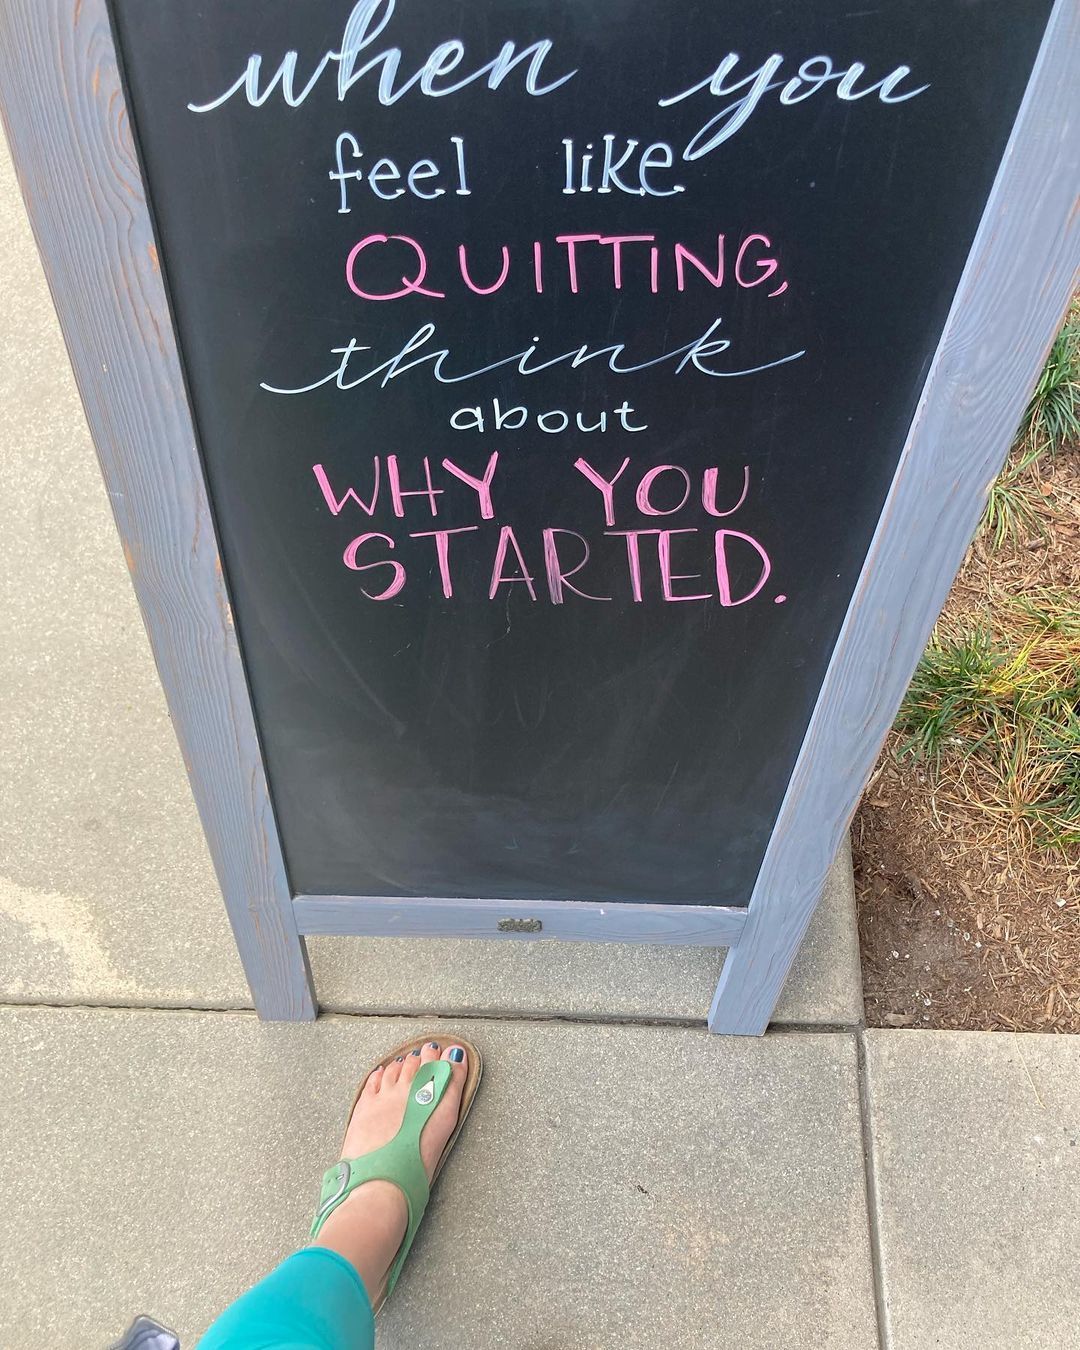 when you
feel like
QUITTING,
think
about
WHY YOU
STARTED.